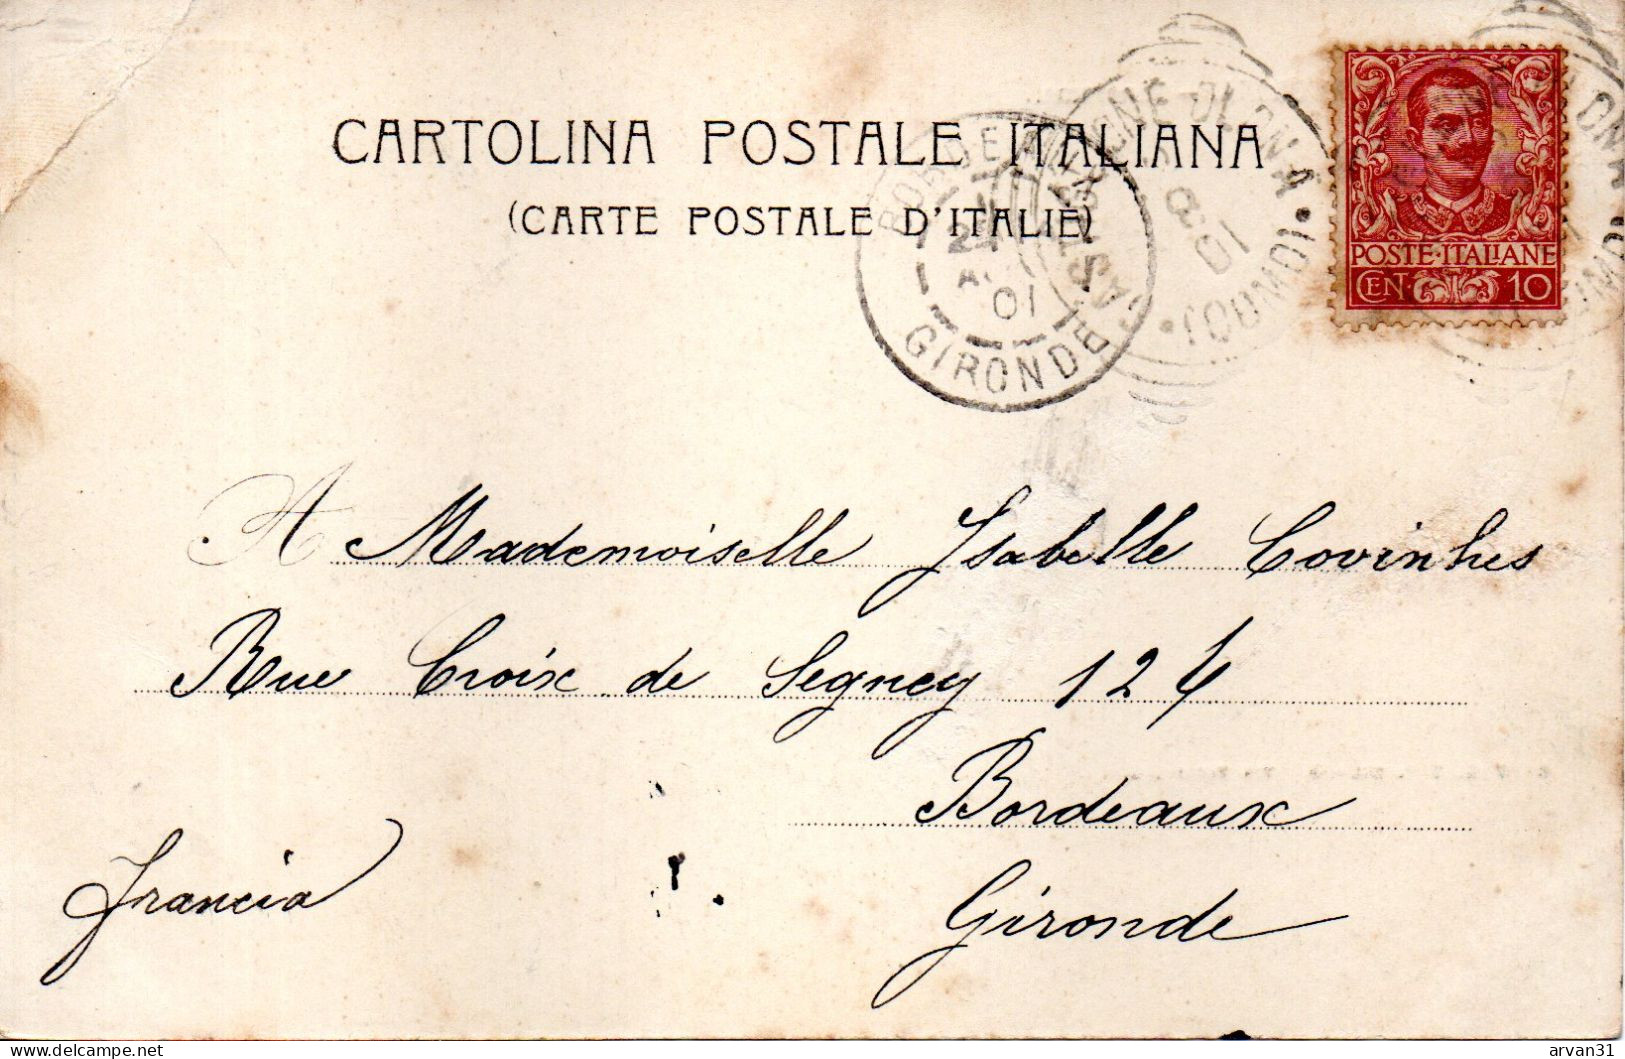 CARTOLINA POSTALE ITALIANA
(CARTE POSTALE D'ITALIE)
BORDEAUX
GIRONDE
01
CASTIGLIONE OLONA
POSTE·ITALIANE
CEN. 10
A Mademoiselle Isabelle Covinhes
Rue Croix de Segney 124
Bordeaux
Gironde
Francia
arvan31
www.delcampe.net